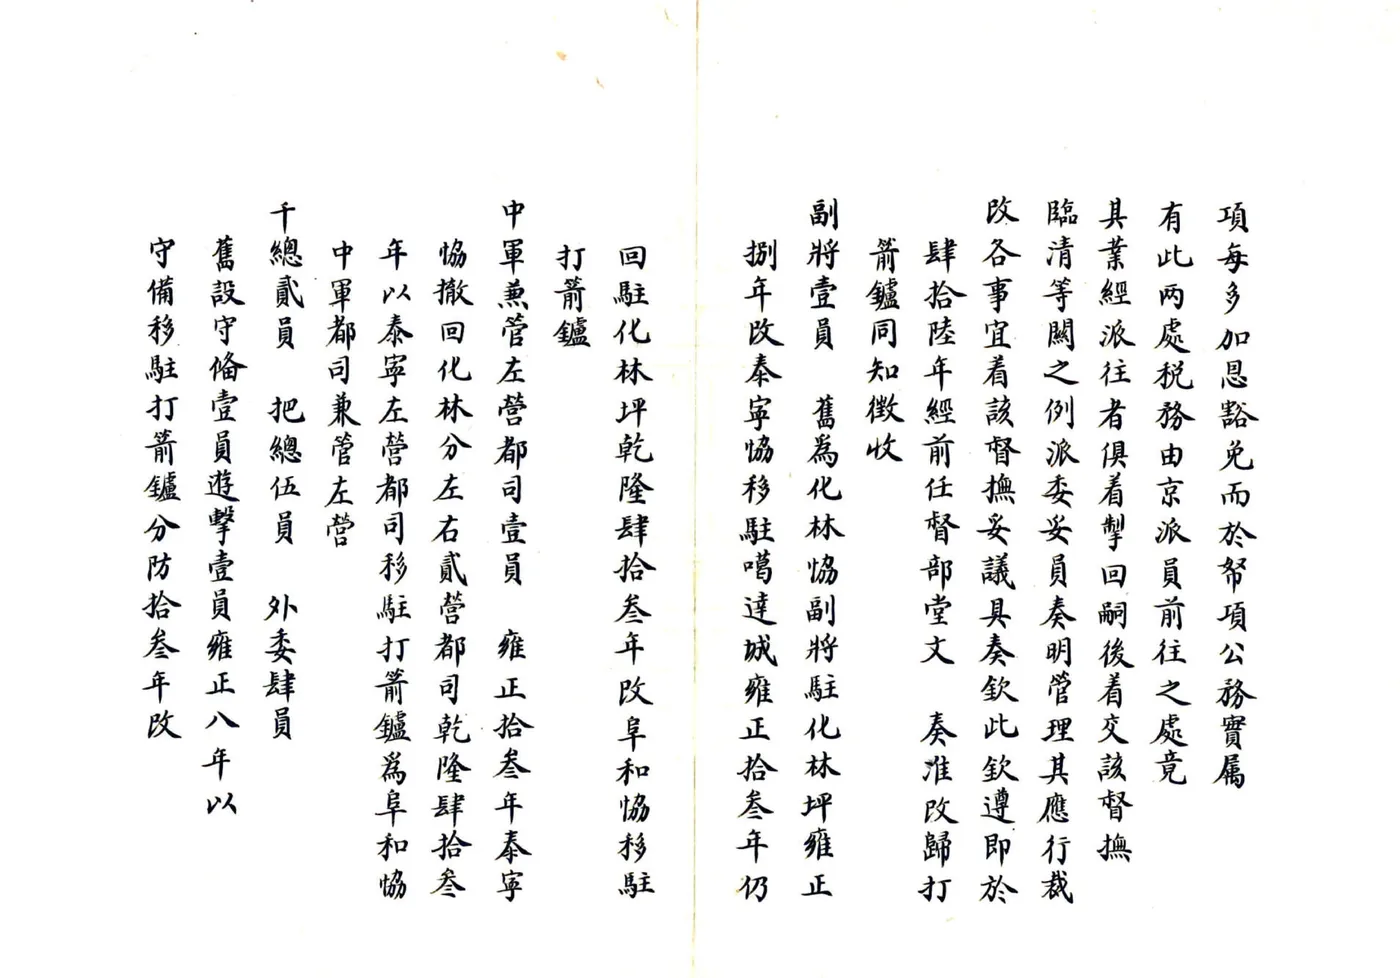 項每多加恩豁免而於帑項公務實属
有此两處税務由京派員前往之處竟
其業經派往者俱着掣回嗣後着交該督撫
臨清等關之例派委妥員奏明管理其應行裁
改各事宜着該督撫妥議具奏欽此欽遵即於
肆拾陸年經前任督部堂文　奏淮改歸打
箭鑪同知徵收
副將壹員　舊為化林恊副將駐化林坪雍正
捌年改泰寧恊移駐噶達城雍正拾叁年仍
回駐化林坪乾隆肆拾叁年改阜和恊移駐
打箭鑪
中軍兼管左營都司壹員　雍正拾叁年泰寧
恊撤回化林分左右貳營都司乾隆肆拾叁
年以泰寧左營都司移駐打箭鑪爲阜和恊
中軍都司兼管左營
千總貳員　把總伍員　外委肆員
舊設守俻壹員遊擊壹員雍正八年以
守備移駐打箭鑪分防拾叁年改